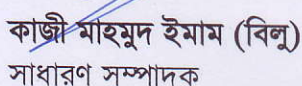 কাজী মাহমুদ ইমাম (বিলু)
সাধারণ সম্পাদক